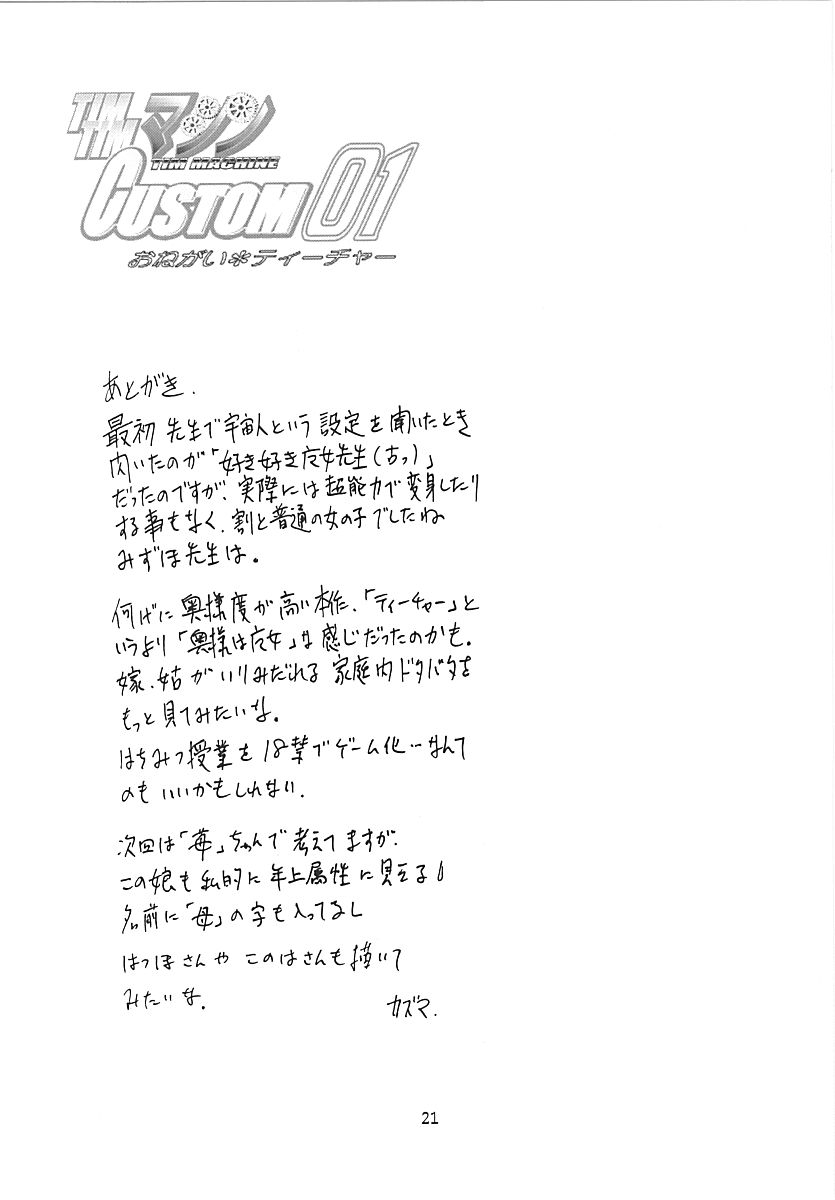 TIM TIM マシン
TIM MACHINE
CUSTOM 01
おねがい＊ティーチャー
あとがき.
最初 先生で宇宙人という設定を聞いたとき
聞いたのが「好き好き魔女先生(古っ)」
だったのですが、実際には超能力で変身したり
する事もなく、割と普通の女の子でしたね
みずほ先生は。
何げに奥様度が高い本作、「ティーチャー」と
いうより「奥様は魔女」な感じだったのかも。
嫁、姑がいりみだれる家庭内ドタバタを
もっと見てみたいな。
はちみつ授業を18禁でゲーム化…なんて
のもいいかもしれない.
次回は「苺」ちゃんで考えてますが、
この娘も私的に年上属性に見える
名前に「母」の字も入ってるし
はつほさんや このはさんも描いて
みたいな。
カズマ.
21